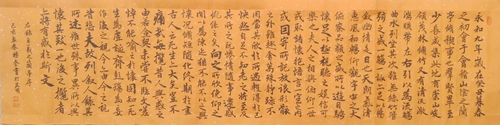 永和九年歲在癸丑暮春
之初會于會稽山陰之蘭
亭脩禊事也羣賢畢至
少長咸集此地有崇山峻
領茂林脩竹又有清流激
湍暎帶左右引以為流觴
曲水列坐其次雖無絲竹管
弦之盛一觴一詠亦足以暢
敘幽情是日也天朗氣清
惠風和暢仰觀宇宙之大
俯察品類之盛所以遊目騁
懷足以極視聽之娛信可
樂也夫人之相與俯仰一世
或取諸懷抱悟言一室之內
或因寄所託放浪形骸
之外雖趣舍萬殊靜躁不
同當其欣於所遇暫得於己
快然自足不知老之將至及其
所之既倦情隨事遷感慨
係之矣向之所欣俛仰之
間以為陳迹猶不能不以之興
懷況脩短隨化終期於盡
古人云死生亦大矣豈不
痛哉每攬昔人興感之
由若合一契未嘗不臨文嗟
悼不能喻之於懷固知一死
生為虛誕齊彭殤為妄
作後之視今亦由今之視
昔悲夫故列敘時人錄其
所述雖世殊事異所以興
懷其致一也後之攬者
亦將有感於斯文
右錄王羲之蘭亭序